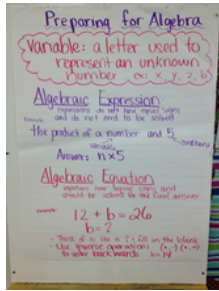 Preparing for Algebra
Variable: a letter used to
represent an unknown
number ex: x, y, z, b
Algebraic Expression
expressions do not have equal signs
and do not need to be solved
Example:
the product of a number and 5
variable
constant
Answer: n x 5
Algebraic Equation
equations have equal signs and
should be solved for the final answer
Example:
12 + b = 26
b = ?
- Think of b like a ? & fill in the blank
- Use inverse operations
to work backwards b = 14